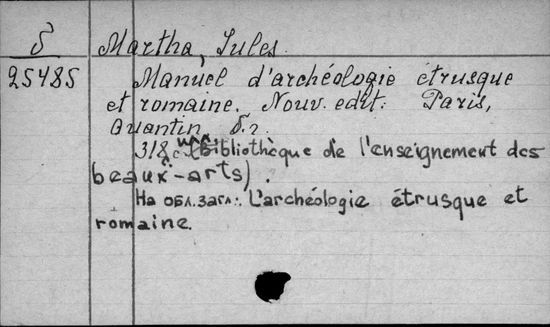 δ Martha, Jules.
25485 Manuel d'archéologie étrusque
et romaine. Nouv. edit. Paris,
Quantin, б.г.
318 с. илл. (Bibliothèque de l'enseignement des
beaux-arts).
На обл. загл.: L'archéologie étrusque et
romaine.